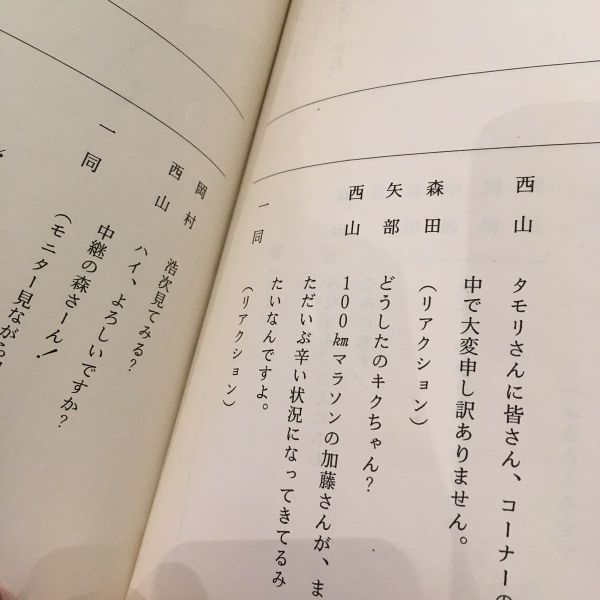 西山　タモリさんに皆さん、コーナーの
中で大変申し訳ありません。
森田　（リアクション）
矢部　どうしたのキクちゃん？
西山　100㎞マラソンの加藤さんが、ま
ただいぶ辛い状況になってきてるみ
たいなんですよ。
一同　（リアクション）
岡村　浩次見てみる？
西山　ハイ、よろしいですか？
中継の森さーん！
一同　（モニター見ながら